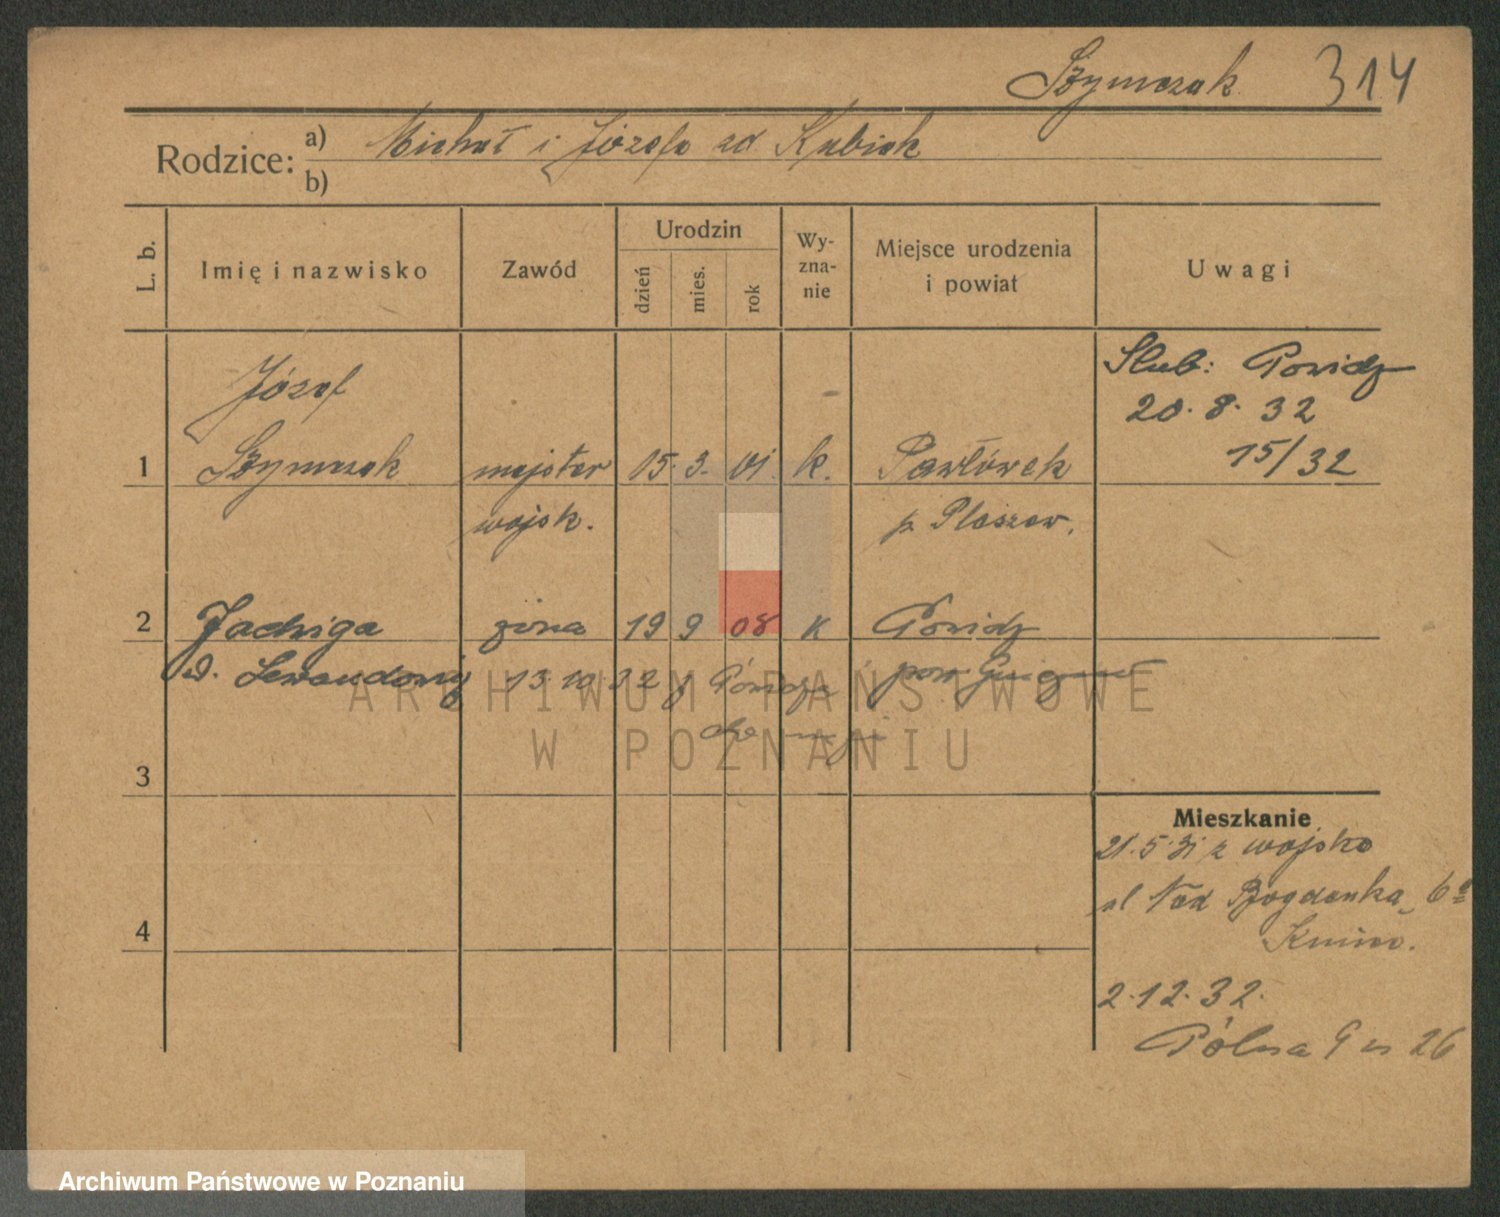 Szymczak 314
Rodzice: a) Michał i Józefa zd Kubiak
b)
L. b.
Imię i nazwisko
Zawód
Urodzin
dzień
mies.
rok
Wy-
zna-
nie
Miejsce urodzenia
i powiat
Uwagi
Ślub: Powidz
20.8.32
15/32
Józef
1 Szymczak majster 15. 3. 01. k. Pawłówek
wojsk. p. Pleszew.
2 Jadwiga żona 19 9 08 k Powidz
13.10.32 z pow Gniezno
3
4
Mieszkanie
21.5.31 z wojska
ul Nad Bogdanką 6a
2.12.32.
Polna 9 m 26
ARCHIWUM PAŃSTWOWE
W POZNANIU
Archiwum Państwowe w Poznaniu